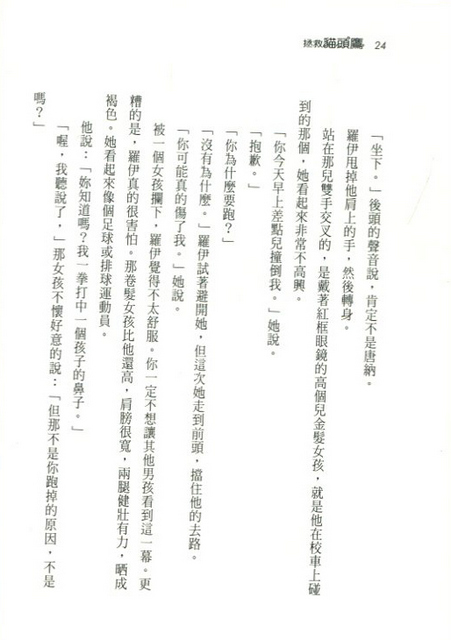 拯救貓頭鷹 24
「坐下。」後頭的聲音說，肯定不是唐納。
羅伊甩掉他肩上的手，然後轉身。
站在那兒雙手交叉的，是戴著紅框眼鏡的高個兒金髮女孩，就是他在校車上碰
到的那個，她看起來非常不高興。
「你今天早上差點兒撞倒我。」她說。
「抱歉。」
「你為什麼要跑？」
「沒有為什麼。」羅伊試著避開她，但這次她走到前頭，擋住他的去路。
「你可能真的傷了我。」她說。
被一個女孩攔下，羅伊覺得不太舒服。你一定不想讓其他男孩看到這一幕。更
糟的是，羅伊真的很害怕。那卷髮女孩比他還高，肩膀很寬，兩腿健壯有力，曬成
褐色。她看起來像個足球或排球運動員。
他說：「妳知道嗎？我一拳打中一個孩子的鼻子。」
「喔，我聽說了，」那女孩不懷好意的說：「但那不是你跑掉的原因，不是
嗎？」